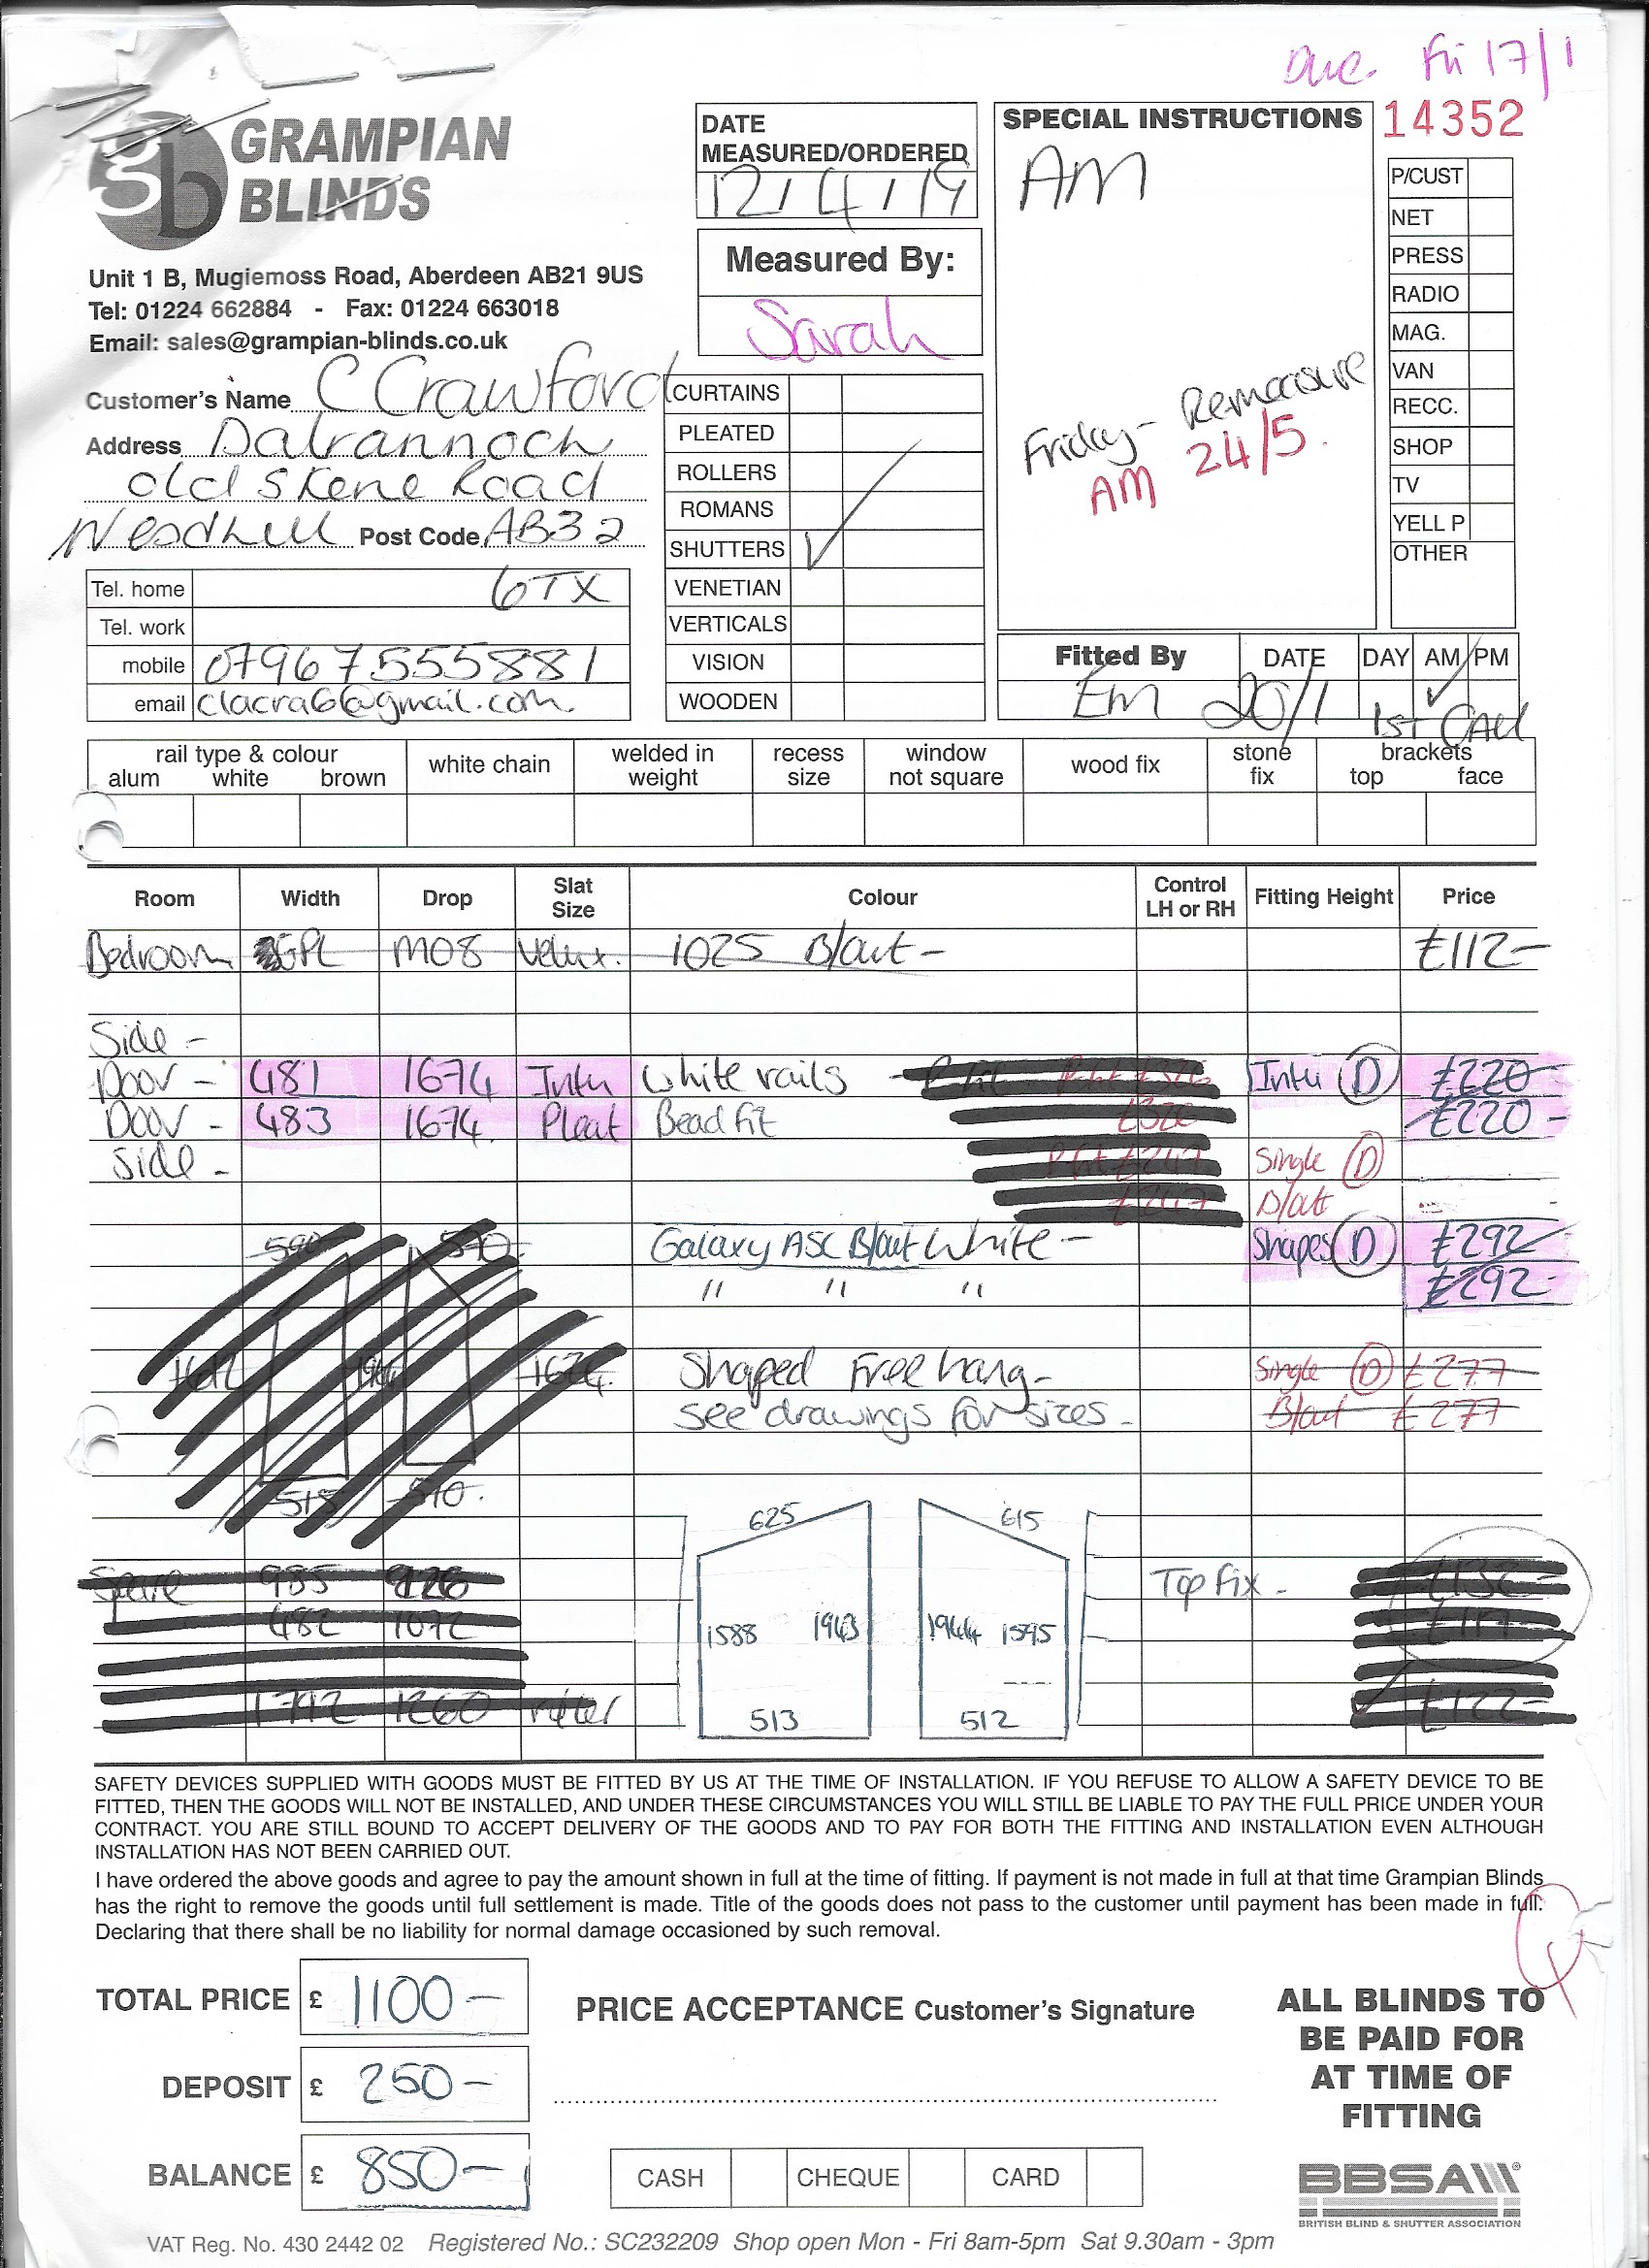 Due Fri 17/1
GRAMPIAN
BLINDS
Unit 1 B, Mugiemoss Road, Aberdeen AB21 9US
Tel: 01224 662884 - Fax: 01224 663018
Email: sales@grampian-blinds.co.uk
DATE
MEASURED/ORDERED
12/4/19
Measured By:
Sarah
SPECIAL INSTRUCTIONS
AM
Friday - Remeasure
AM 24/5.
14352
P/CUST
NET
PRESS
RADIO
MAG.
VAN
RECC.
SHOP
TV
YELL P
OTHER
Customer's Name C Crawford
Address Dalrannoch
Old Skene Road
Westhill Post Code AB32
Tel. home 6TX
Tel. work
mobile 07967555881
email clacra6@gmail.com
CURTAINS
PLEATED
ROLLERS
ROMANS
SHUTTERS
VENETIAN
VERTICALS
VISION
WOODEN
Fitted By DATE DAY AM/PM
EM 20/1 1st Call
rail type & colour
alum white brown
white chain
welded in
weight
recess
size
window
not square
wood fix
stone
fix
brackets
top face
Room Width Drop Slat Size Colour Control LH or RH Fitting Height Price
Bedroom GPL M08 Velux. 1025 B/out - £112-
Side -
Door - 481 1674 Intu White rails Intu D £220
Door - 483 1674. Pleat Bead fit £220-
Side - Single D
B/out
Galaxy ASC B/out White - Shapes D £292
" " " £292-
Shaped Free hang - Single D £277
see drawings for sizes - B/out £277
515 510.
625 615
985
Top fix -
482 1072
1588 1963 1944 1595
1792 1260
513 512
SAFETY DEVICES SUPPLIED WITH GOODS MUST BE FITTED BY US AT THE TIME OF INSTALLATION. IF YOU REFUSE TO ALLOW A SAFETY DEVICE TO BE
FITTED, THEN THE GOODS WILL NOT BE INSTALLED, AND UNDER THESE CIRCUMSTANCES YOU WILL STILL BE LIABLE TO PAY THE FULL PRICE UNDER YOUR
CONTRACT. YOU ARE STILL BOUND TO ACCEPT DELIVERY OF THE GOODS AND TO PAY FOR BOTH THE FITTING AND INSTALLATION EVEN ALTHOUGH
INSTALLATION HAS NOT BEEN CARRIED OUT.
I have ordered the above goods and agree to pay the amount shown in full at the time of fitting. If payment is not made in full at that time Grampian Blinds
has the right to remove the goods until full settlement is made. Title of the goods does not pass to the customer until payment has been made in full.
Declaring that there shall be no liability for normal damage occasioned by such removal.
TOTAL PRICE £ 1100-
DEPOSIT £ 250-
BALANCE £ 850-
PRICE ACCEPTANCE Customer's Signature
CASH CHEQUE CARD
ALL BLINDS TO
BE PAID FOR
AT TIME OF
FITTING
BBSA
BRITISH BLIND & SHUTTER ASSOCIATION
VAT Reg. No. 430 2442 02 Registered No.: SC232209 Shop open Mon - Fri 8am-5pm Sat 9.30am - 3pm